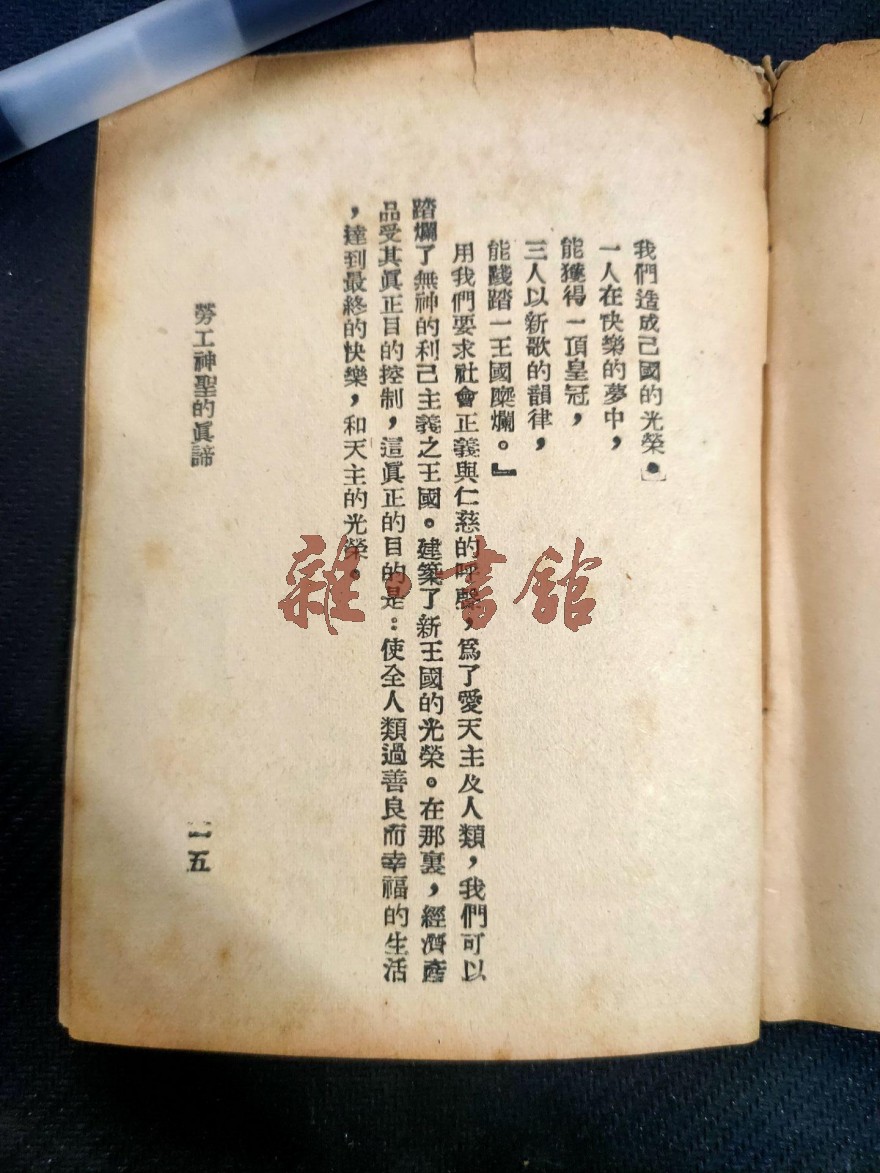 我們造成己國的光榮。
一人在快樂的夢中，
能獲得一頂皇冠，
三人以新歌的韻律，
能踐踏一王國糜爛。』
用我們要求社會正義與仁慈的呼聲，爲了愛天主及人類，我們可以
踏爛了無神的利己主義之王國。建築了新王國的光榮。在那裏，經濟產
品受其眞正目的控制，這眞正的目的是：使全人類過善良而幸福的生活
，達到最終的快樂，和天主的光榮。
勞工神聖的眞諦
一五
雜·書館